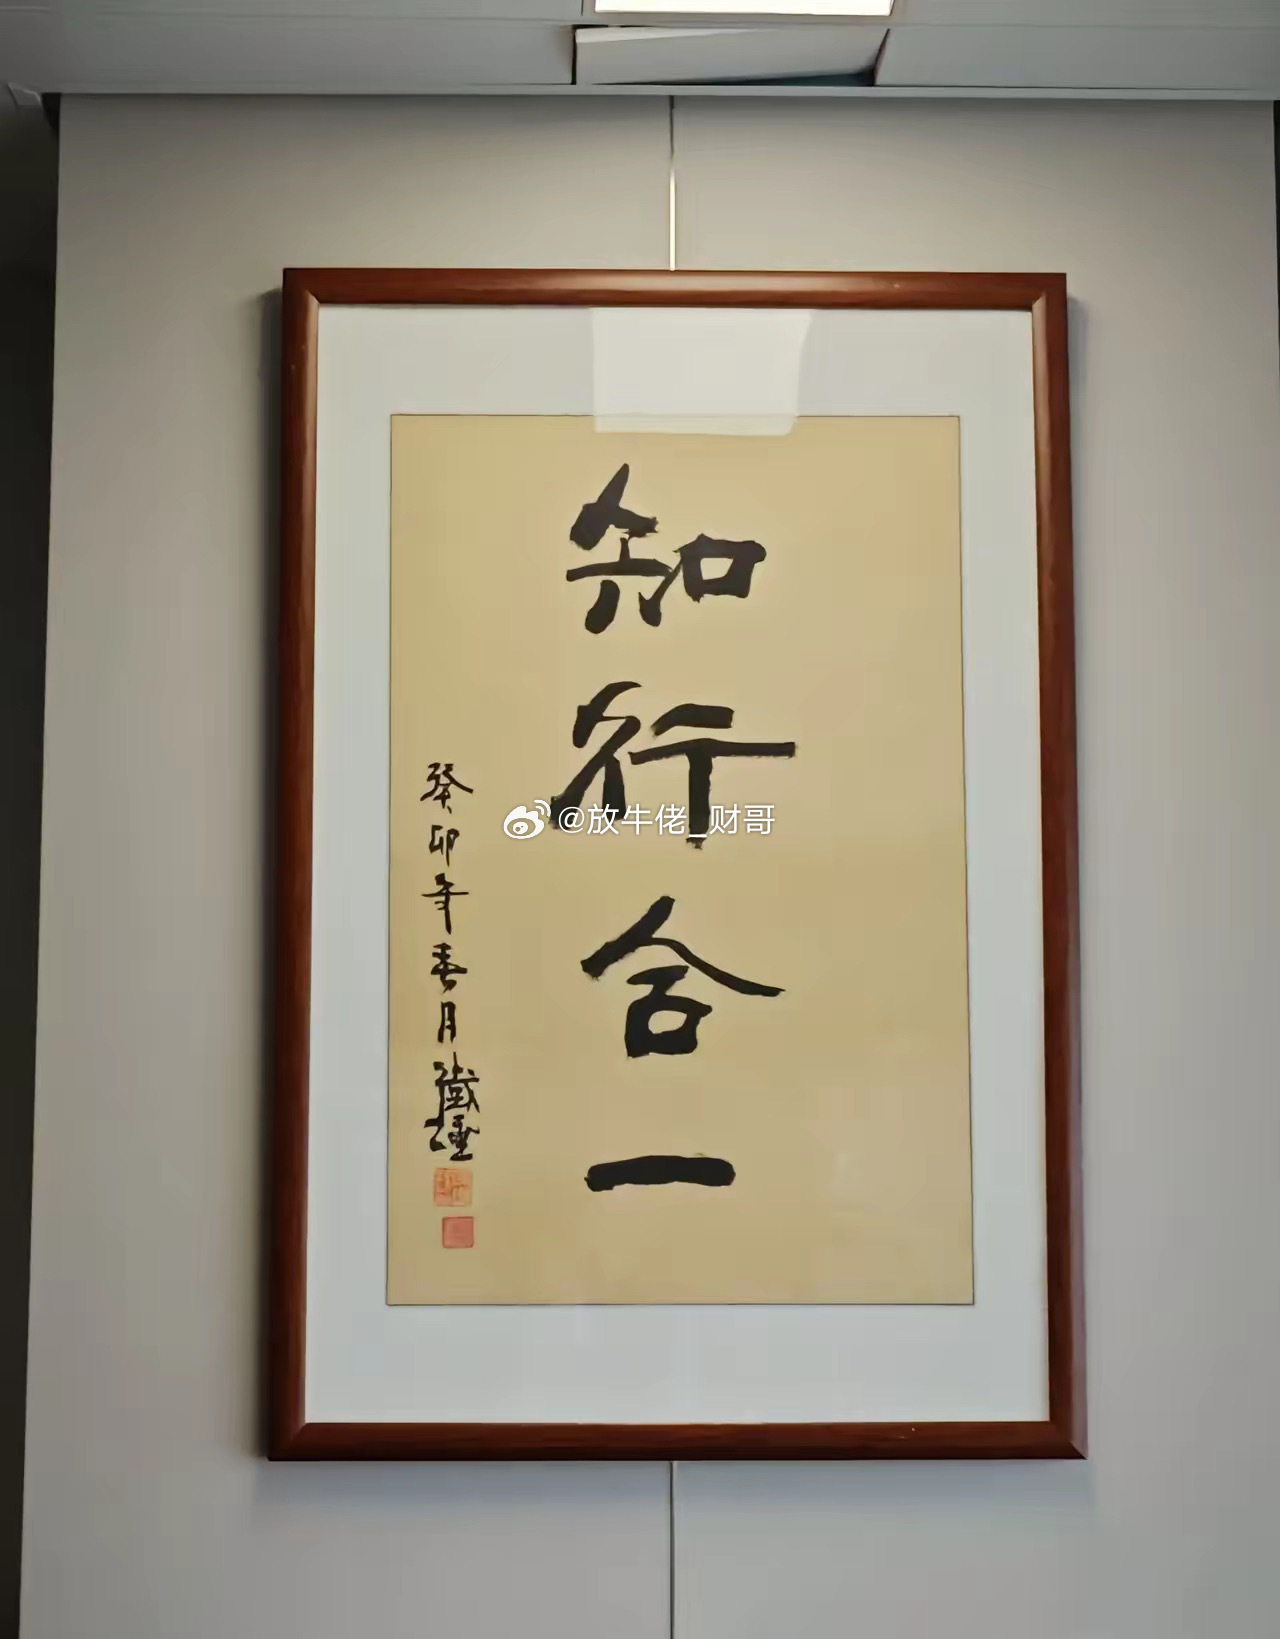 知行合一
癸卯年春月
@放牛佬_财哥